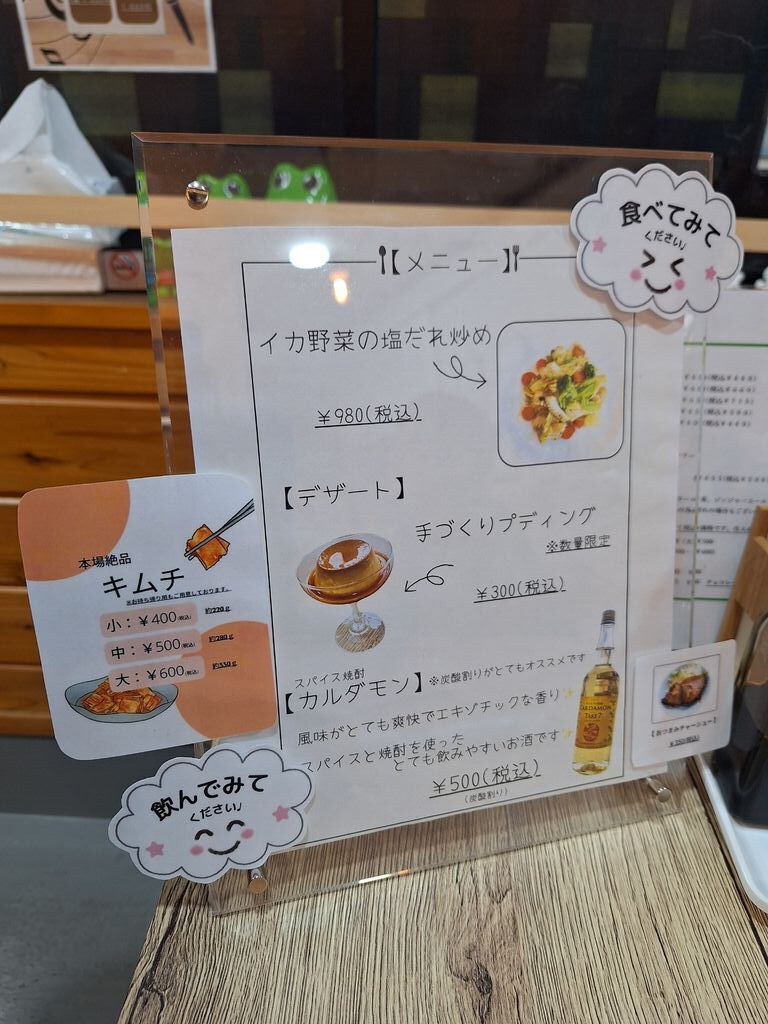 食べてみて
ください♩
【メニュー】
イカ野菜の塩だれ炒め
￥980(税込)
【デザート】
手づくりプディング
※数量限定
￥300(税込)
スパイス焼酎
【カルダモン】※炭酸割りがとてもオススメです
風味がとても爽快でエキゾチックな香り✨
スパイスと焼酎を使った
とても飲みやすいお酒です✨
￥500(税込)
(炭酸割り)
CARDAMON
TAKE 7
本場絶品
キムチ
※お持ち帰り用もご用意しております。
小：￥400(税込) 約220g
中：￥500(税込) 約280g
大：￥600(税込) 約330g
飲んでみて
ください♩
【おつまみチャーシュー】
￥350(税込)